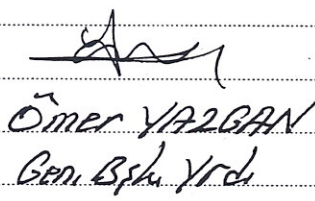 Ömer YAZGAN
Gen. Bşk. Yrd.